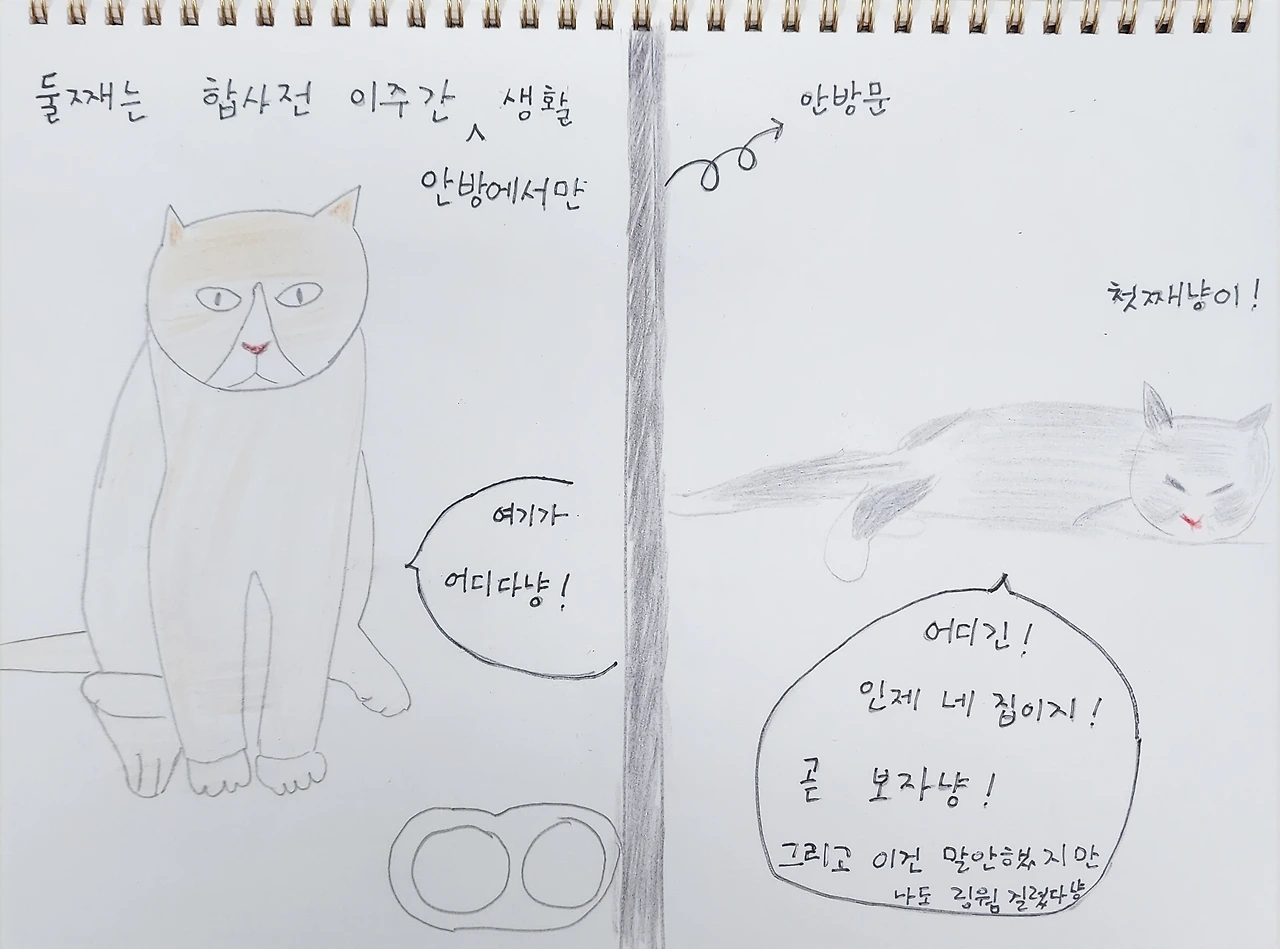 둘째는 합사전 이주간 ^ 생활
안방에서만
여기가
어디다냥!
안방문
첫째냥이!
어디긴!
인제 네 집이지!
곧 보자냥!
그리고 이건 말안했지만
나도 링웜 질렀다냥